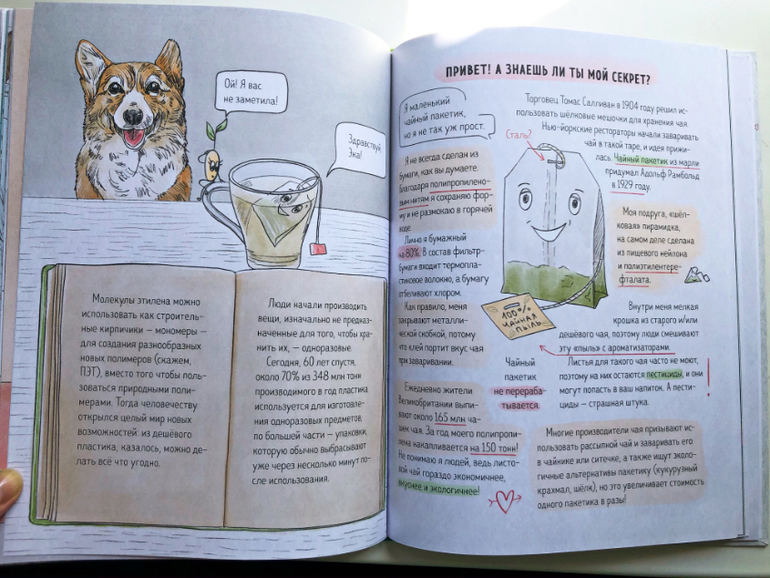 Ой! Я вас
не заметила!
Здравствуй,
Эка!
Молекулы этилена можно
использовать как строитель-
ные кирпичики — мономеры —
для создания разнообразных
новых полимеров (скажем,
ПЭТ), вместо того чтобы поль-
зоваться природными поли-
мерами. Тогда человечеству
открылся целый мир новых
возможностей: из дешёвого
пластика, казалось, можно де-
лать всё что угодно.
Люди начали производить
вещи, изначально не предназ-
наченные для того, чтобы хра-
нить их, — одноразовые.
Сегодня, 60 лет спустя,
около 70% из 348 млн тонн
производимого в год пластика
используется для изготовле-
ния одноразовых предметов,
по большей части — упаковки,
которую обычно выбрасывают
уже через несколько минут по-
сле использования.
ПРИВЕТ! А ЗНАЕШЬ ЛИ ТЫ МОЙ СЕКРЕТ?
Я маленький
чайный пакетик,
но я не так уж прост.
Торговец Томас Салливан в 1904 году решил ис-
пользовать шёлковые мешочки для хранения чая.
Нью-йоркские рестораторы начали заваривать
чай в такой таре, и идея прижи-
лась. Чайный пакетик из марли
придумал Адольф Рамбольд
в 1929 году.
Сталь?
Я не всегда сделан из
бумаги, как вы думаете.
Благодаря полипропилено-
вым нитям я сохраняю фор-
му и не размокаю в горячей
воде.
Лично я бумажный
на 80%. В состав фильтр-
бумаги входит термопла-
стиковое волокно, а бумагу
отбеливают хлором.
Как правило, меня
закрывают металли-
ческой скобкой, потому
что клей портит вкус чая
при заваривании.
Моя подруга, «шёл-
ковая» пирамидка,
на самом деле сделана
из пищевого нейлона
и полиэтилентере-
фталата.
100%
ЧАЙНАЯ
ПЫЛЬ
Внутри меня мелкая
крошка из старого и/или
дешёвого чая, поэтому люди смешивают
эту «пыль» с ароматизаторами.
Чайный
пакетик
не перераба-
тывается.
Листья для такого чая часто не моют,
поэтому на них остаются пестициды, и они
могут попасть в ваш напиток. А пести-
циды — страшная штука.
!
Ежедневно жители
Великобритании выпи-
вают около 165 млн ча-
шек чая. За год моего полипропи-
лена накапливается на 150 тонн!
Не понимаю я людей, ведь листо-
вой чай гораздо экономичнее,
вкуснее и экологичнее!
Многие производители чая призывают ис-
пользовать рассыпной чай и заваривать его
в чайнике или ситечке, а также ищут эколо-
гичные альтернативы пакетику (кукурузный
крахмал, шёлк), но это увеличивает стоимость
одного пакетика в разы!